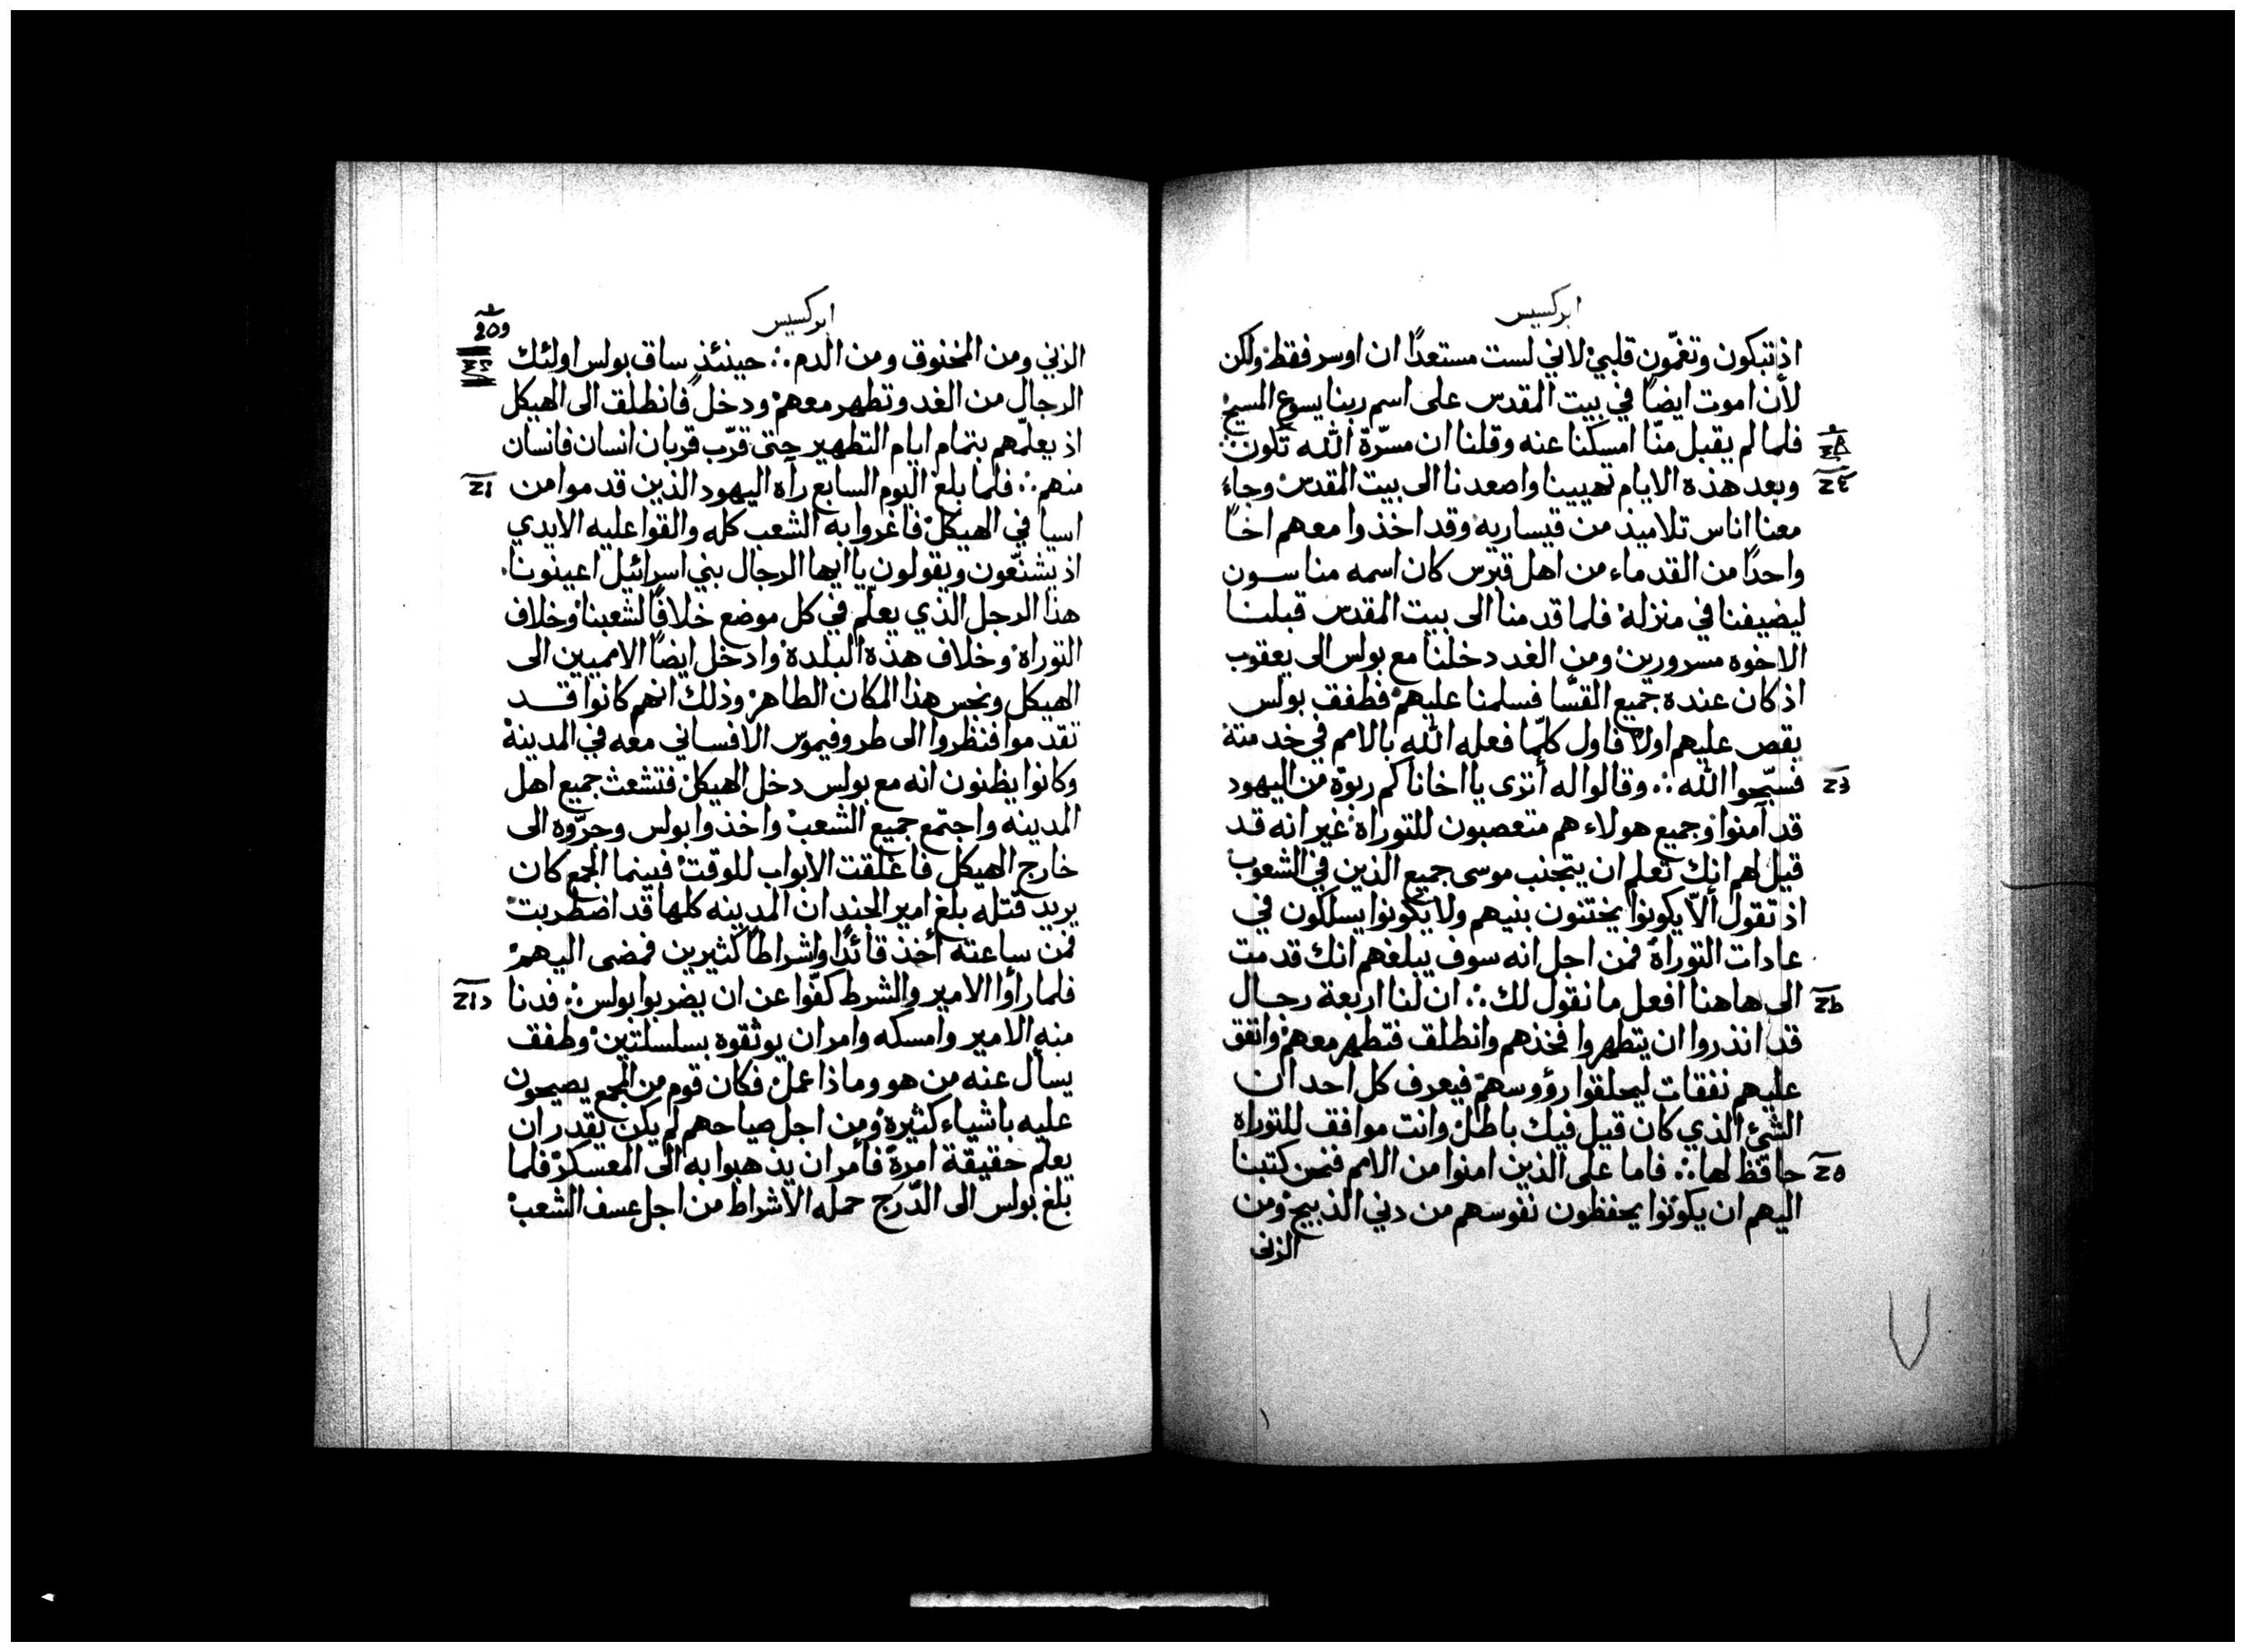 ابركسيس
اذ تبكون وتغمّون قلبي لاني لست مستعدًا ان اوسر فقط ولكن
لأن اموت ايضًا في بيت المقدس على اسم ربنا يسوع المسيح
فلما لم يقبل منّا امسكنا عنه وقلنا ان مسرّة الله تكون
وبعد هذه الايام تهيينا واصعدنا الى بيت المقدس وجاء
معنا اناس تلاميذ من قيساريه وقد اخذوا معهم اخًا
واحدًا من القدماء من اهل قبرس كان اسمه مناسون
ليضيفنا في منزله فلما قدمنا الى بيت المقدس قبلنا
الاخوه مسرورين ومن الغد دخلنا مع بولس الى يعقوب
اذ كان عنده جميع القسّا فسلمنا عليهم فطفق بولس
يقص عليهم اولًا فاول كلمّا فعله الله بالامم في خدمتة
فسبّحوا الله ∴ وقالوا له أترى يا اخانا كم ربوة من اليهود
قد آمنوا وجميع هولاء هم متعصبون للتوراة غير انه قد
قيل لهم انك تعلم ان يتجنب موسى جميع الذين في الشعوب
اذ تقول ألاّ يكونوا يختنون بنيهم ولا يكونوا يسلكون في
عادات التوراة فمن اجل انه سوف يبلغهم انك قدمت
الى هاهنا افعل ما نقول لك ∴ ان لنا اربعة رجال
قد انذروا ان يتطهروا فخذهم وانطلق فتطهر معهم وانفق
عليهم نفقات ليحلقوا رؤوسهم فيعرف كل احد ان
الشئ الذي كان قيل فيك باطل وانت موافق للتوراه
حافظ لها ∴ فاما على الذين امنوا من الامم فنحن كتبنا
اليهم ان يكونوا يحفظون نفوسهم من دني الذبيح ومن
الزنى
ابركسيس
الزني ومن المخنوق ومن الدم ∴ حينئذٍ ساق بولس اولئك
الرجال من الغد وتطهر معهم ودخل فانطلق الى الهيكل
اذ يعلّمهم بتمام ايام التطهير حتى قرّب قربان انسان فانسان
منهم ∴ فلما بلغ اليوم السابع رآه اليهود الذين قدموا من
اسيا في الهيكل فاغروا به الشعب كله والقوا عليه الايدي
اذ يشنّعون ويقولون يا ايها الرجال بني اسرائيل اعينونا
هذا الرجل الذي يعلّم في كل موضع خلافًا لشعبنا وخلاف
التوراة وخلاف هذه البلدة وادخل ايضًا الامميين الى
الهيكل ونجس هذا المكان الطاهر وذلك انهم كانوا قد
تقدموا فنظروا الى طروفيموس الافساني معه في المدينة
وكانوا يظنون انه مع بولس دخل الهيكل فتشعث جميع اهل
المدينه واجتمع جميع الشعب واخذوا بولس وجرّوه الى
خارج الهيكل فاغلقت الابواب للوقت فبينما الجمع كان
يريد قتله بلغ امير الجند ان المدينه كلها قد اضطربت
فمن ساعته أخذ قائدًا واشراطًا كثيرين فمضى اليهم
فلما رأوا الامير والشرط كفّوا عن ان يضربوا بولس ∴ فدنا
منه الامير وامسكه وامر ان يوثقوه بسلسلتين وطفق
يسأل عنه من هو وماذا عمل فكان قوم من الجمع يصيحون
عليه باشياء كثيرة ومن اجل صياحهم لم يكن يقدر ان
يعلم حقيقة امرة فأمر ان يذهبوا به الى المعسكر فلما
بلغ بولس الى الدّرج حمله الاشراط من اجل عسف الشعب